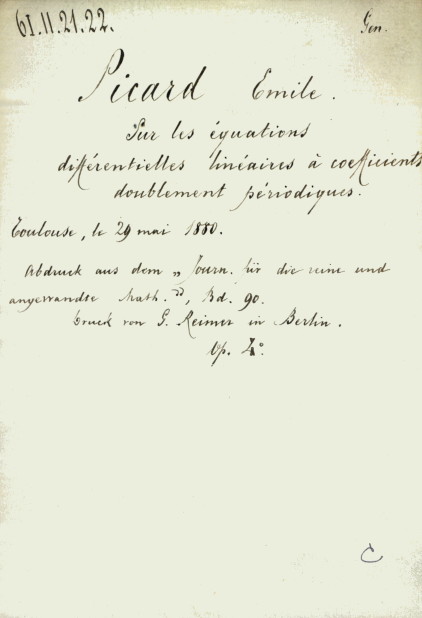 61.11.21.22.
Gen.
Picard Emile.
Sur les équations
différentielles linéaires à coefficients
doublement périodiques.
Toulouse, le 29 mai 1880.
Abdruck aus dem „ Journ. für die reine und
angewandte Math. ", Bd. 90.
Druck von G. Reimer in Berlin.
4°.
C